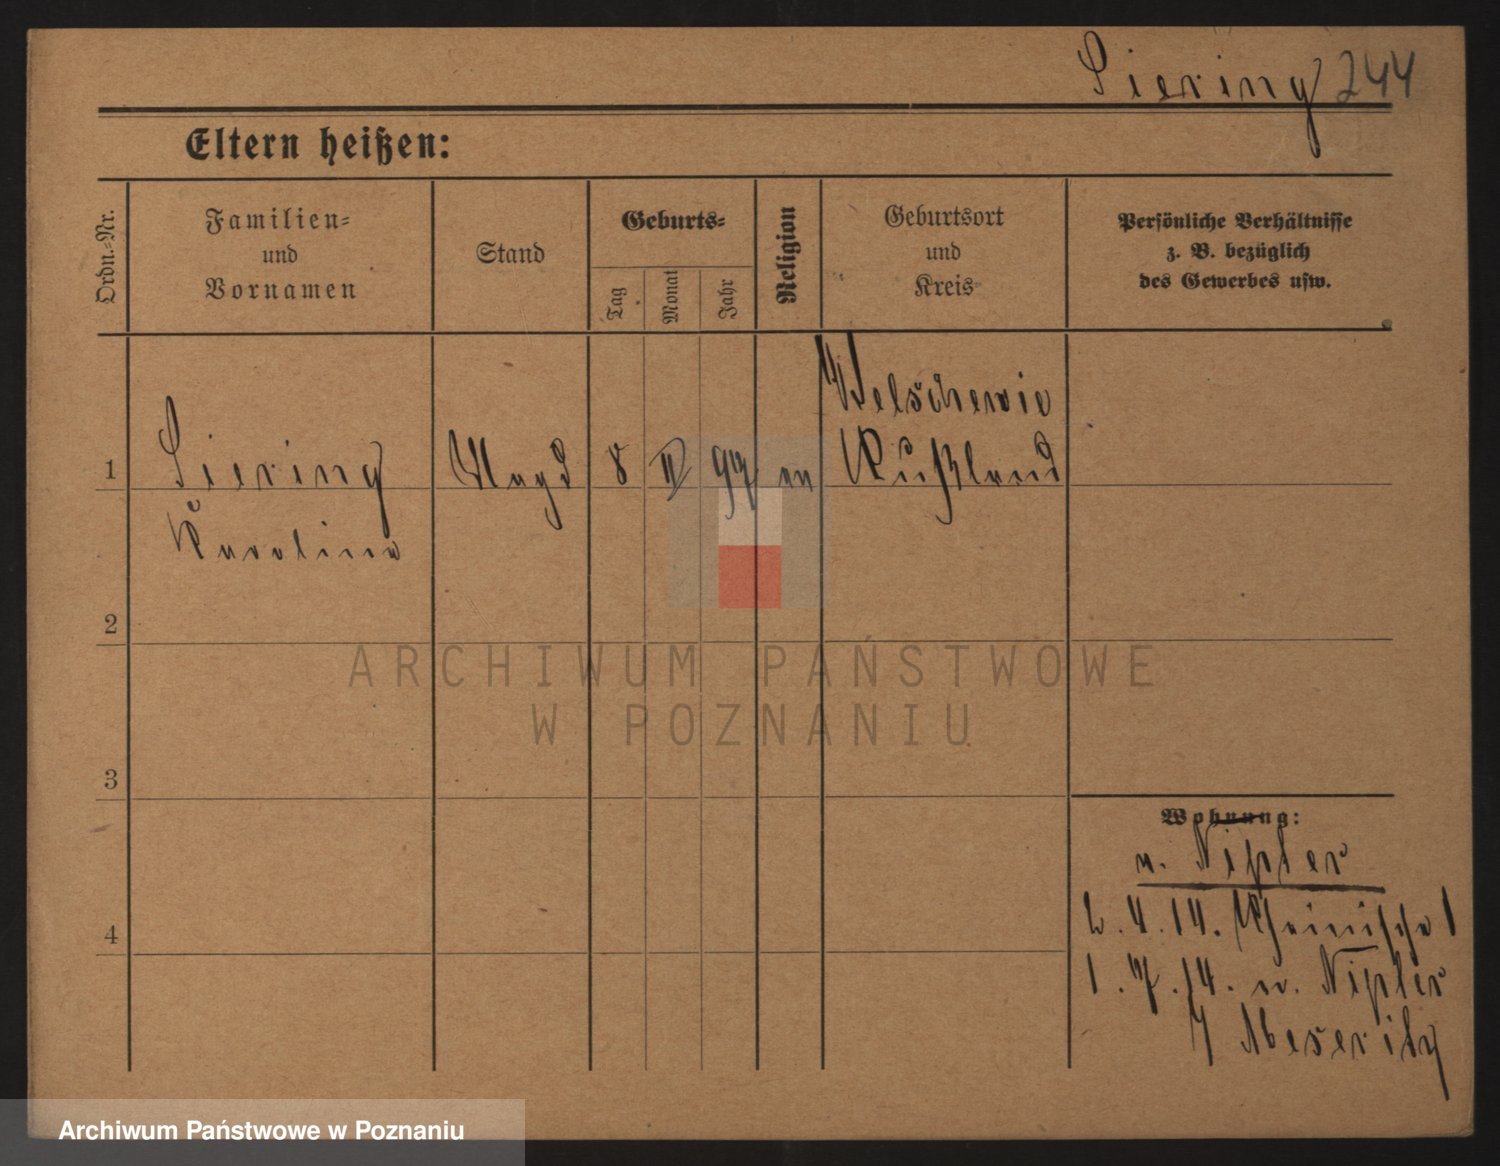 Siering 244
Eltern heißen:
Ordn.-Nr.
Familien-
und
Vornamen
Stand
Geburts-
Tag
Monat
Jahr
Religion
Geburtsort
und
Kreis
Persönliche Verhältnisse
z. B. bezüglich
des Gewerbes usw.
1
Siering
Karolina
Magd
8
II
97
ev
Rußland
2
3
4
Wohnung:
n. Nipter
2.4.14. Rheinische 1
1.7.14. n. Nipter
Meseritz
ARCHIWUM PAŃSTWOWE
W POZNANIU
Archiwum Państwowe w Poznaniu